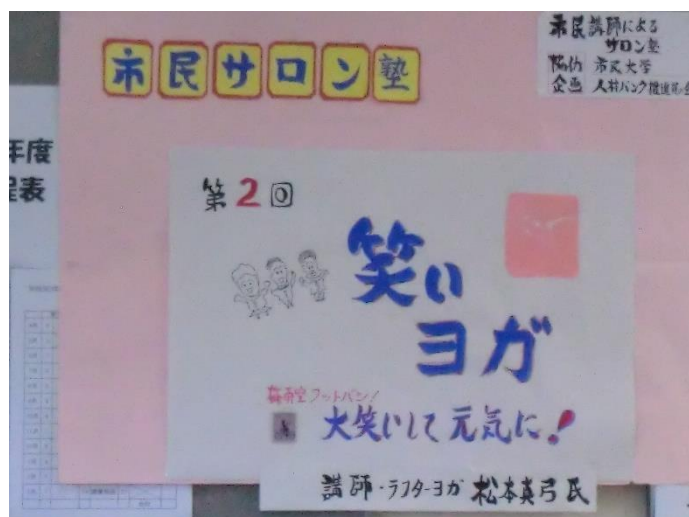 市民サロン塾
市民講師による
サロン塾
協力 市民大学
企画 人材バンク推進部会
年度
程表
第2回
笑い
ヨガ
梅雨空フットバシ!
大笑いして元気に!
講師・ラフターヨガ 松本真弓氏